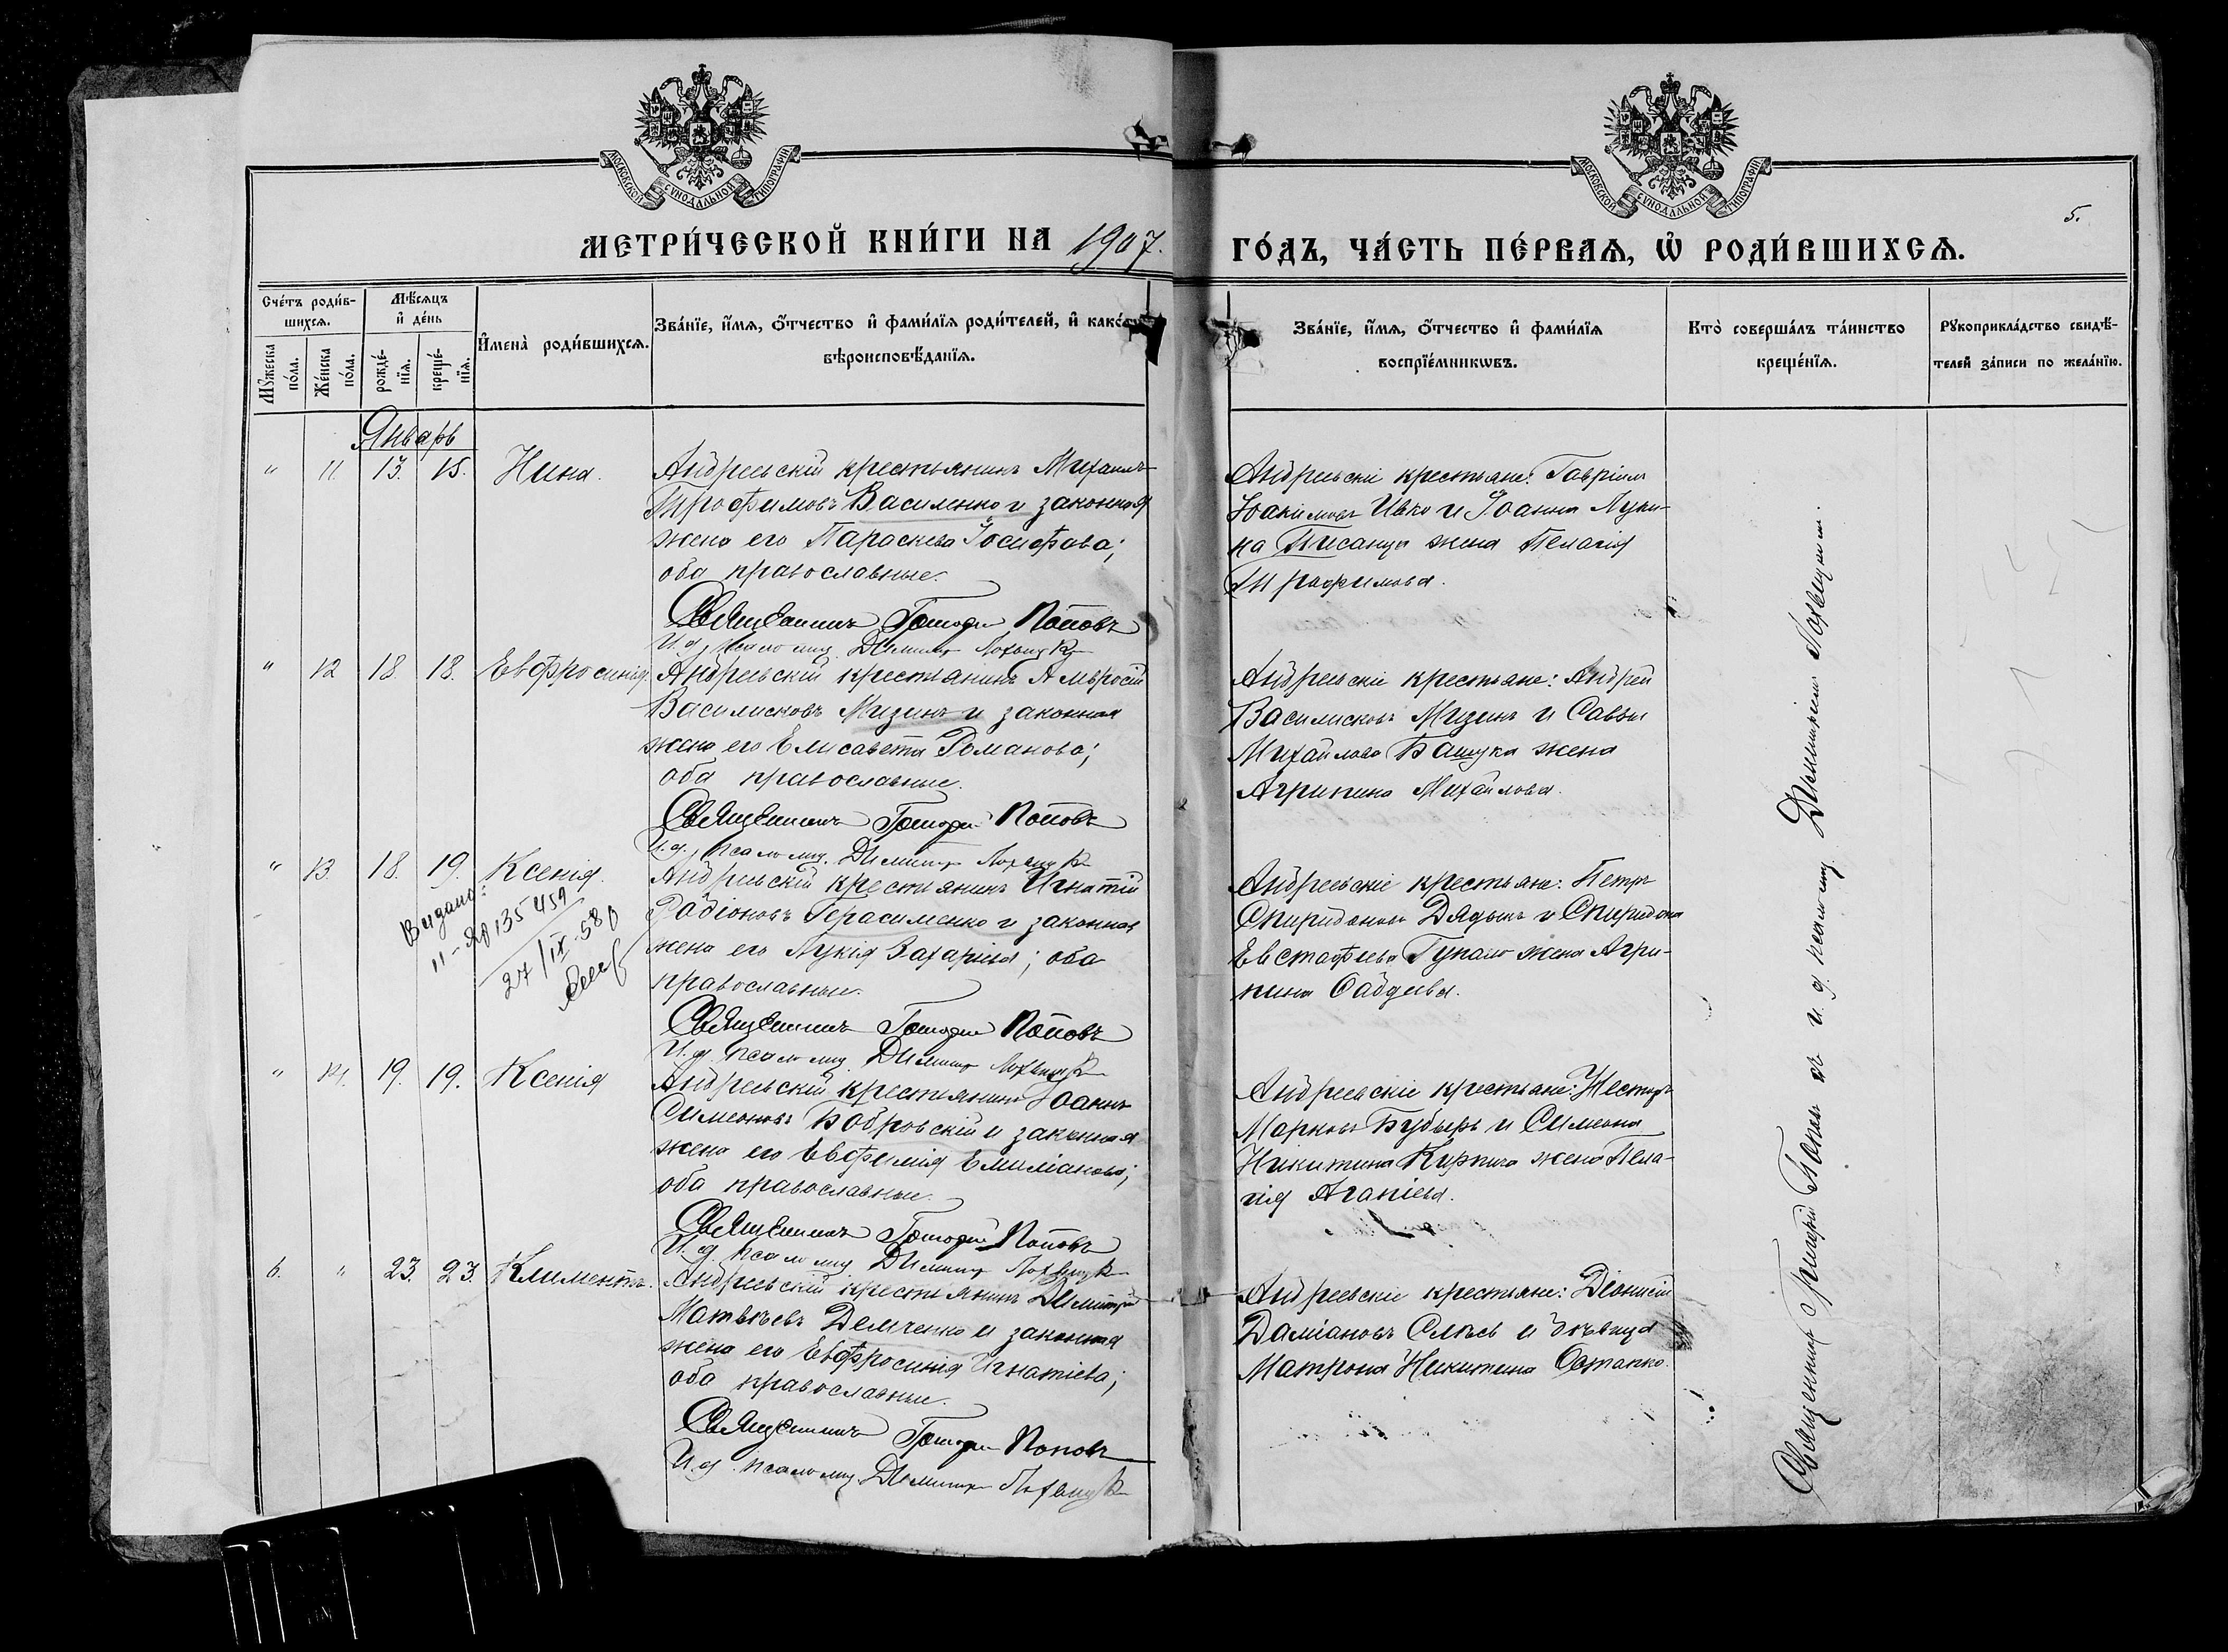 МОСКОВСКОЙ СѴНОДАЛЬНОЙ ТИПОГРАФІИ
МОСКОВСКОЙ СѴНОДАЛЬНОЙ ТИПОГРАФІИ
5.
МЕТРИ́ЧЕСКОЙ КНИ́ГИ НА 1907. ГО́ДЪ, ЧА́СТЬ ПЕ́РВАѦ, Ѡ҆ РОДИ́ВШИХСѦ.
Сче́тъ роди́в-
шихсѧ.
Мѣ́сѧцъ
и҆ де́нь
Мꙋ́жеска
по́ла.
Же́нска
по́ла.
рожде́-
нїѧ.
креще́-
нїѧ.
И҆мена̀ роди́вшихсѧ.
Зва́нїе, и҆́мѧ, ѻ҆́тчество и҆ фами́лїѧ роди́телей, и҆ како́гѡ
вѣроисповѣ́данїѧ.
Зва́нїе, и҆́мѧ, ѻ҆́тчество и҆ фами́лїѧ
воспрїе́мникѡвъ.
Кто̀ соверша́лъ та́инство
креще́нїѧ.
Рꙋкоприкла́дство свидѣ́-
телей за́писи по жела́нїю.
Январь
" 11. 13. 15. Нина.
Андреевскій крестьянинъ Михаилъ
Трофимовъ Василенко и законная
жена его Параскева Іосифова;
оба православные.
Священникъ Григорій Поповъ
И. д. псаломщ. Димитр
Андреевскіе крестьяне: Гавріилъ
Іоакимовъ Ивко и Іоанна Луки-
на Писанца жена Пелагія
Трофимова.
" 12 18. 18. Евфросинія
Андреевскій крестьянинъ Амвросій
Василисковъ Мизинъ и законная
жена его Елисавета Романова;
оба православные.
Священникъ Григорій Поповъ
И. д. псаломщ. Димитр
Андреевскіе крестьяне: Андрей
Василисковъ Мизинъ и Саввы
Михайлова Башука жена
Агрипина Михайлова.
" 13 18. 19. Ксенія
Выдано:
II-ЯЮ 135459
27/IX-580
Андреевскій крестьянинъ Игнатій
Родіоновъ Герасименко и законная
жена его Лукія Захаріева; оба
православные.
Священникъ Григорій Поповъ
И. д. псаломщ. Димитр
Андреевскіе крестьяне: Петръ
Спиридоновъ Дядынъ и Спиридона
Евстафіева Гупало жена Агри-
пина Фаддеева.
" 14. 19. 19. Ксенія
Андреевскій крестьянинъ Іоаннъ
Симеоновъ Бобровскій и законная
жена его Евфимія Емиліанова;
оба православные.
Священникъ Григорій Поповъ
И. д. псаломщ Димитр
Андреевскіе крестьяне: Несторъ
Марковъ Бубырь и Симеона
Никитина Кирпича жена Пела-
гія Агапіева.
6. " 23. 23. Климентъ.
Андреевскій крестьянинъ Димитрій
Матвѣевъ Демченко и законная
жена его Евфросинія Игнатіева;
оба православные.
Священникъ Григорій Поповъ
И. д. псаломщ. Димитр
Андреевскіе крестьяне: Діонисій
Даміановъ Слѣсь и дѣвица
Матрона Никитина Остапко.
Священникъ Григорій Поповъ съ и. д. псаломщ. Димитріемъ